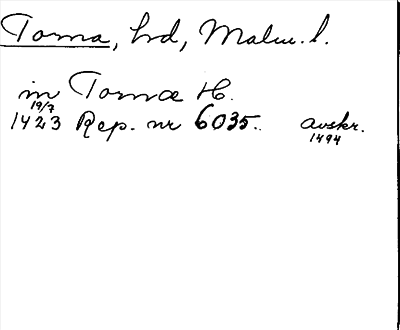 Torna, hd, Malm. l.
in Torna H.
19/7
1423 Rep. nr 6035. avskr.
1494